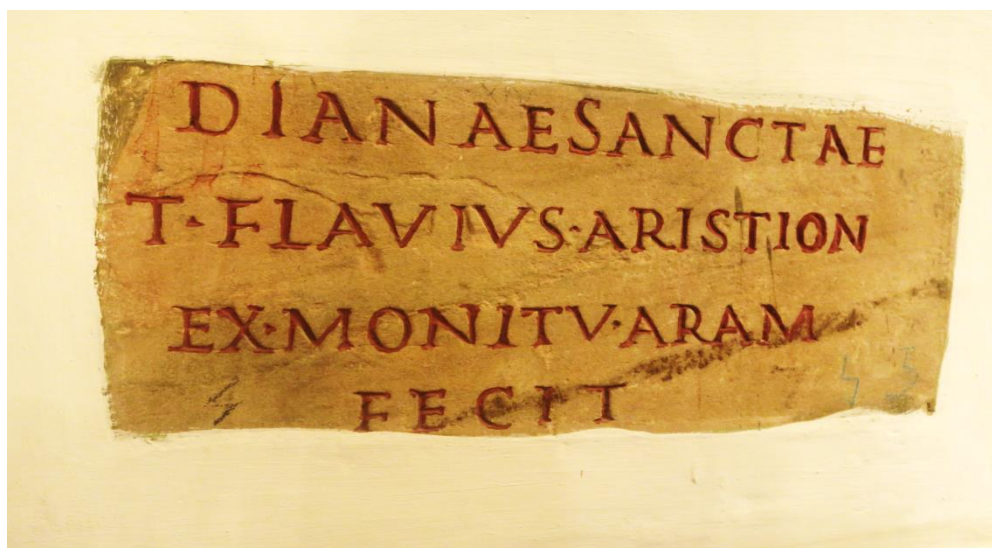 DIANAE SANCTAE
T·FLAVIVS·ARISTION
EX·MONITV·ARAM
FECIT